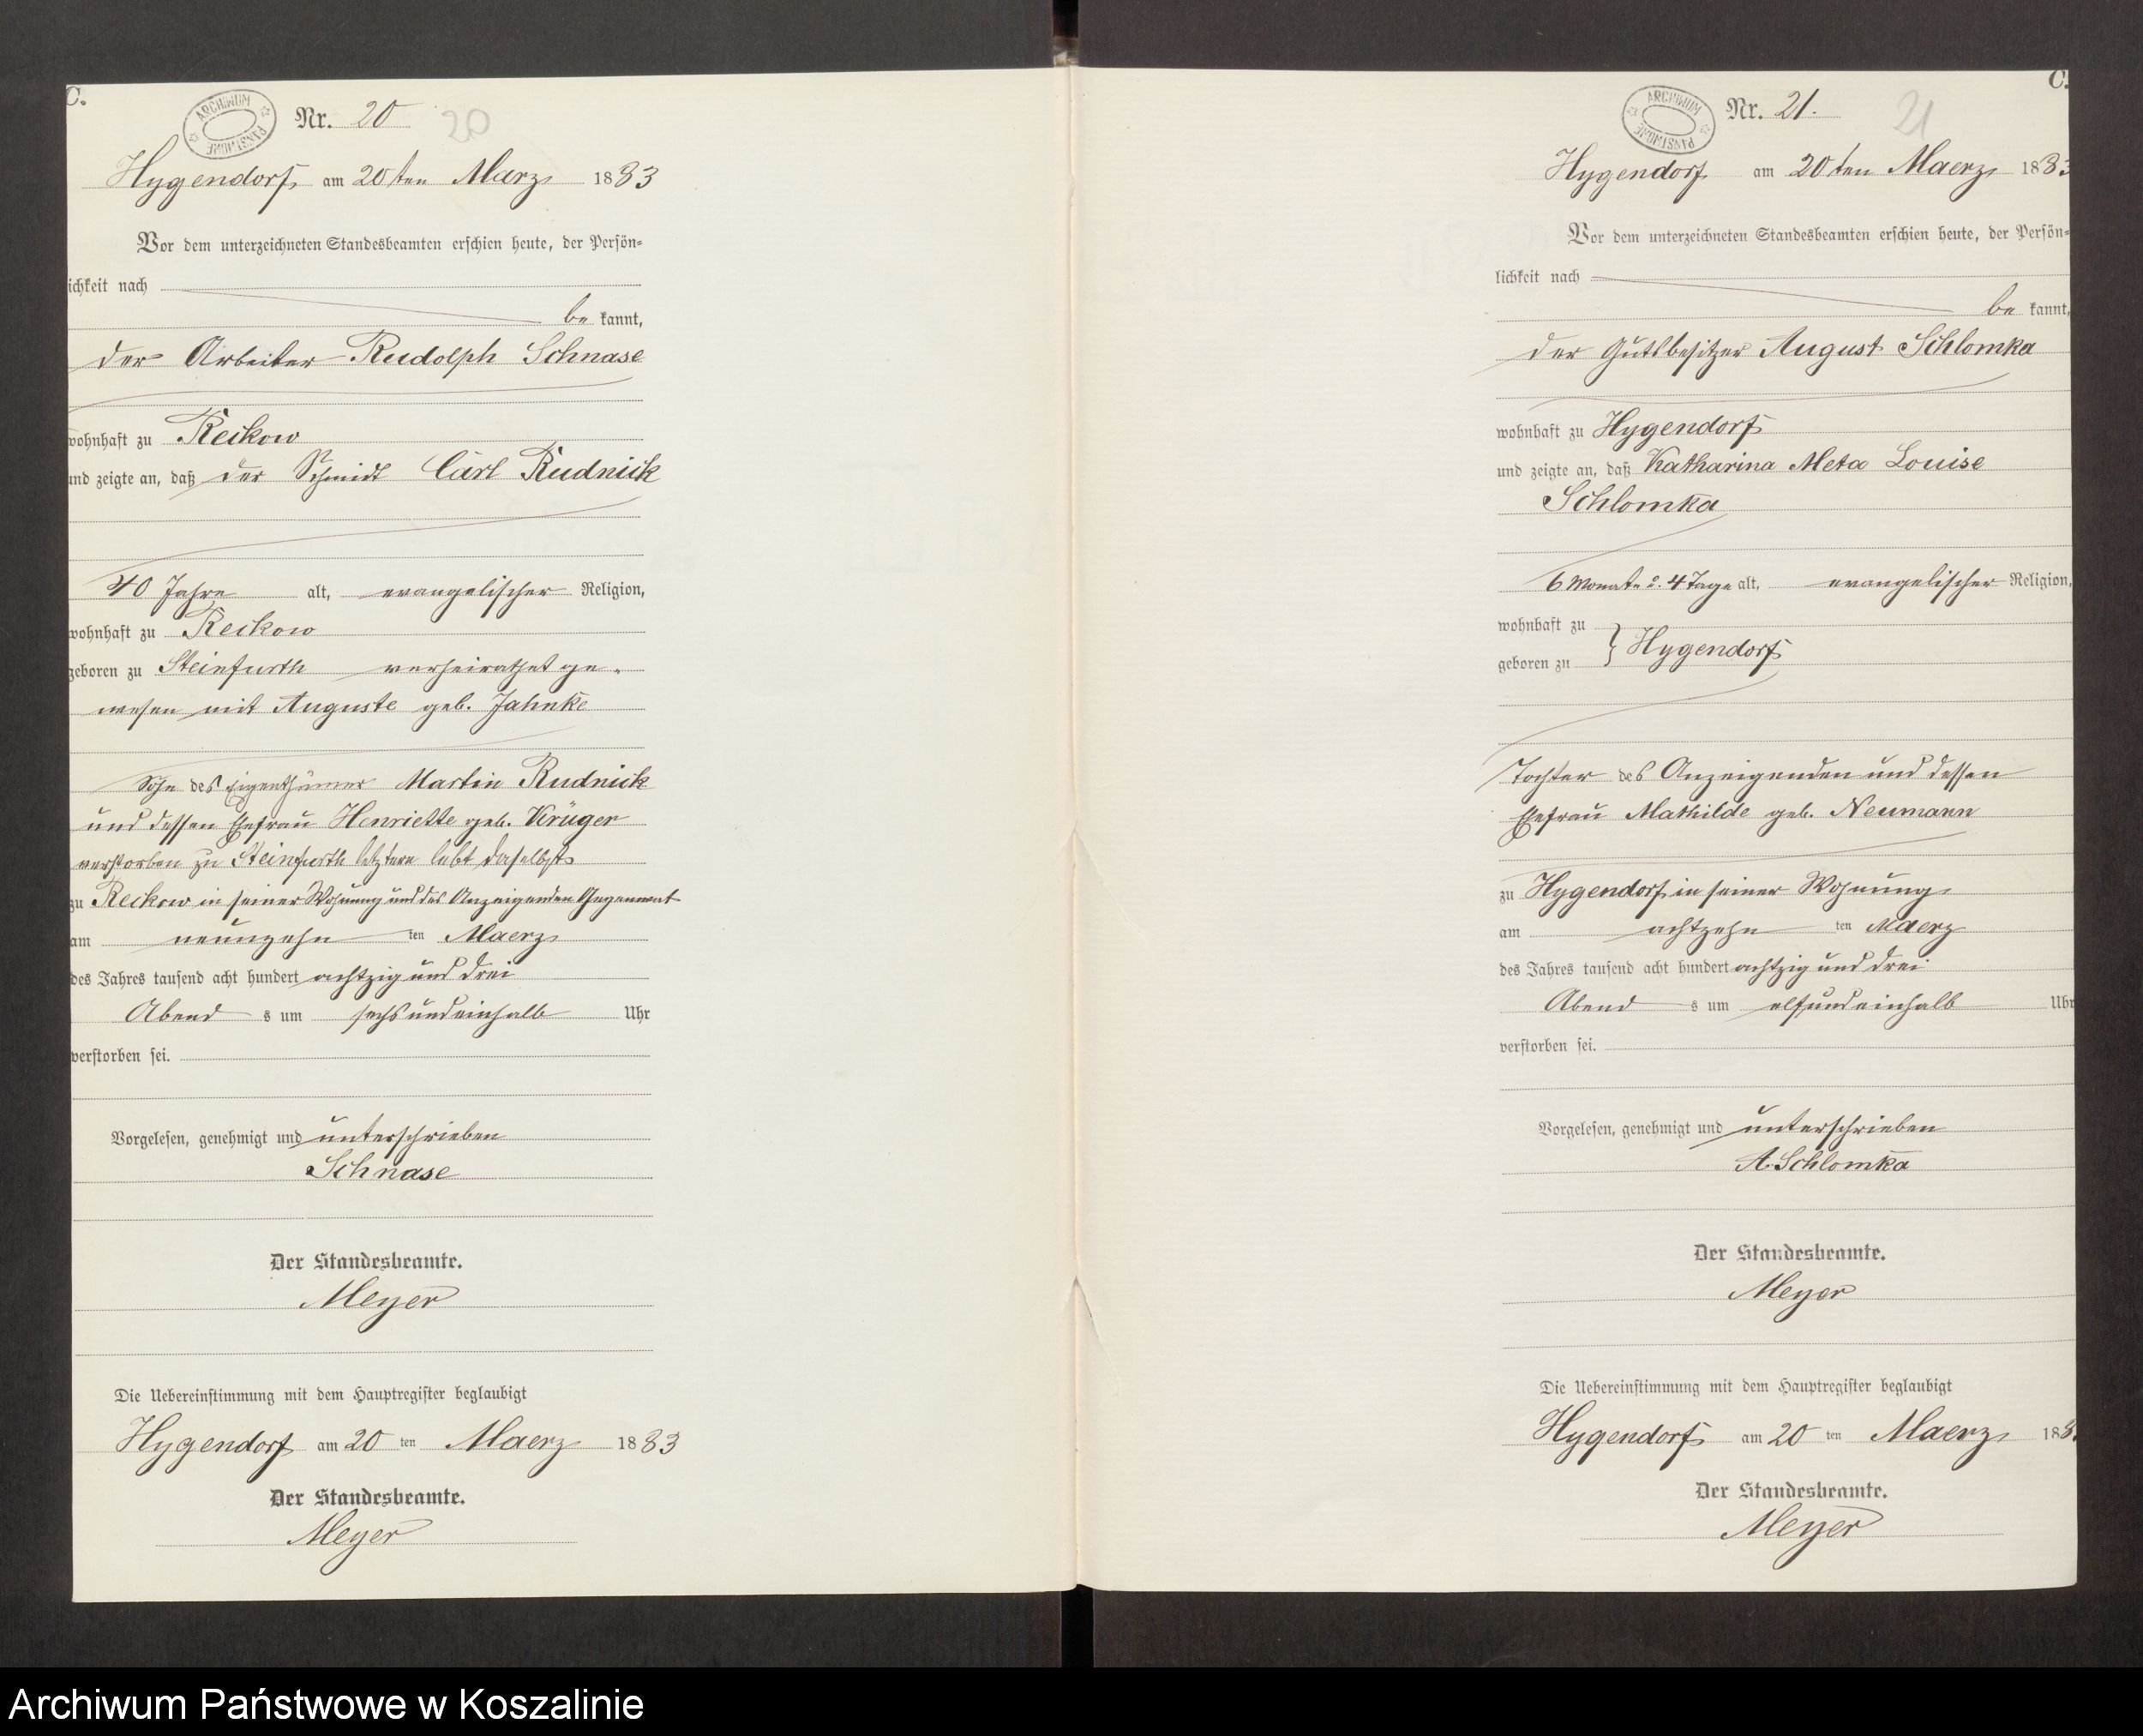 C.
ARCHIWUM PAŃSTWOWE
Nr. 20
20
Hygendorf am 20ten März 1883
Vor dem unterzeichneten Standesbeamten erschien heute, der Persön-
lichkeit nach
be kannt,
der Arbeiter Rudolph Schnase
wohnhaft zu Reckow
und zeigte an, daß der Schmidt Carl Rudnick
40 Jahre alt, evangelischer Religion,
wohnhaft zu Reckow
geboren zu Steinfurth verheirathet ge-
wesen mit Auguste geb. Jahnke
Sohn des Eigenthümer Martin Rudnick
und dessen Ehefrau Henriette geb. Krüger
verstorben zu Steinfurth letztere lebt daselbst
zu Reckow in seiner Wohnung und des Anzeigenden Gegenwart
am neunzehn ten Maerz
des Jahres tausend acht hundert achtzig und drei
Abend s um sechs und einhalb Uhr
verstorben sei.
Vorgelesen, genehmigt und unterschrieben
Schnase
Der Standesbeamte.
Meyer
Die Uebereinstimmung mit dem Hauptregister beglaubigt
Hygendorf am 20 ten Maerz 1883
Der Standesbeamte.
Meyer
C.
ARCHIWUM PAŃSTWOWE
Nr. 21.
21
Hygendorf am 20ten Maerz 1883
Vor dem unterzeichneten Standesbeamten erschien heute, der Persön-
lichkeit nach
be kannt,
der Gutsbesitzer August Schlomka
wohnhaft zu Hygendorf
und zeigte an, daß Katharina Meta Louise
Schlomka
6 Monate u. 4 Tage alt, evangelischer Religion,
wohnhaft zu
geboren zu } Hygendorf
Tochter des Anzeigenden und dessen
Ehefrau Mathilde geb. Neumann
zu Hygendorf in seiner Wohnung
am achtzehn ten Maerz
des Jahres tausend acht hundert achtzig und drei
Abend s um elf und einhalb Uhr
verstorben sei.
Vorgelesen, genehmigt und unterschrieben
A. Schlomka
Der Standesbeamte.
Meyer
Die Uebereinstimmung mit dem Hauptregister beglaubigt
Hygendorf am 20 ten Maerz 188
Der Standesbeamte.
Meyer
Archiwum Państwowe w Koszalinie